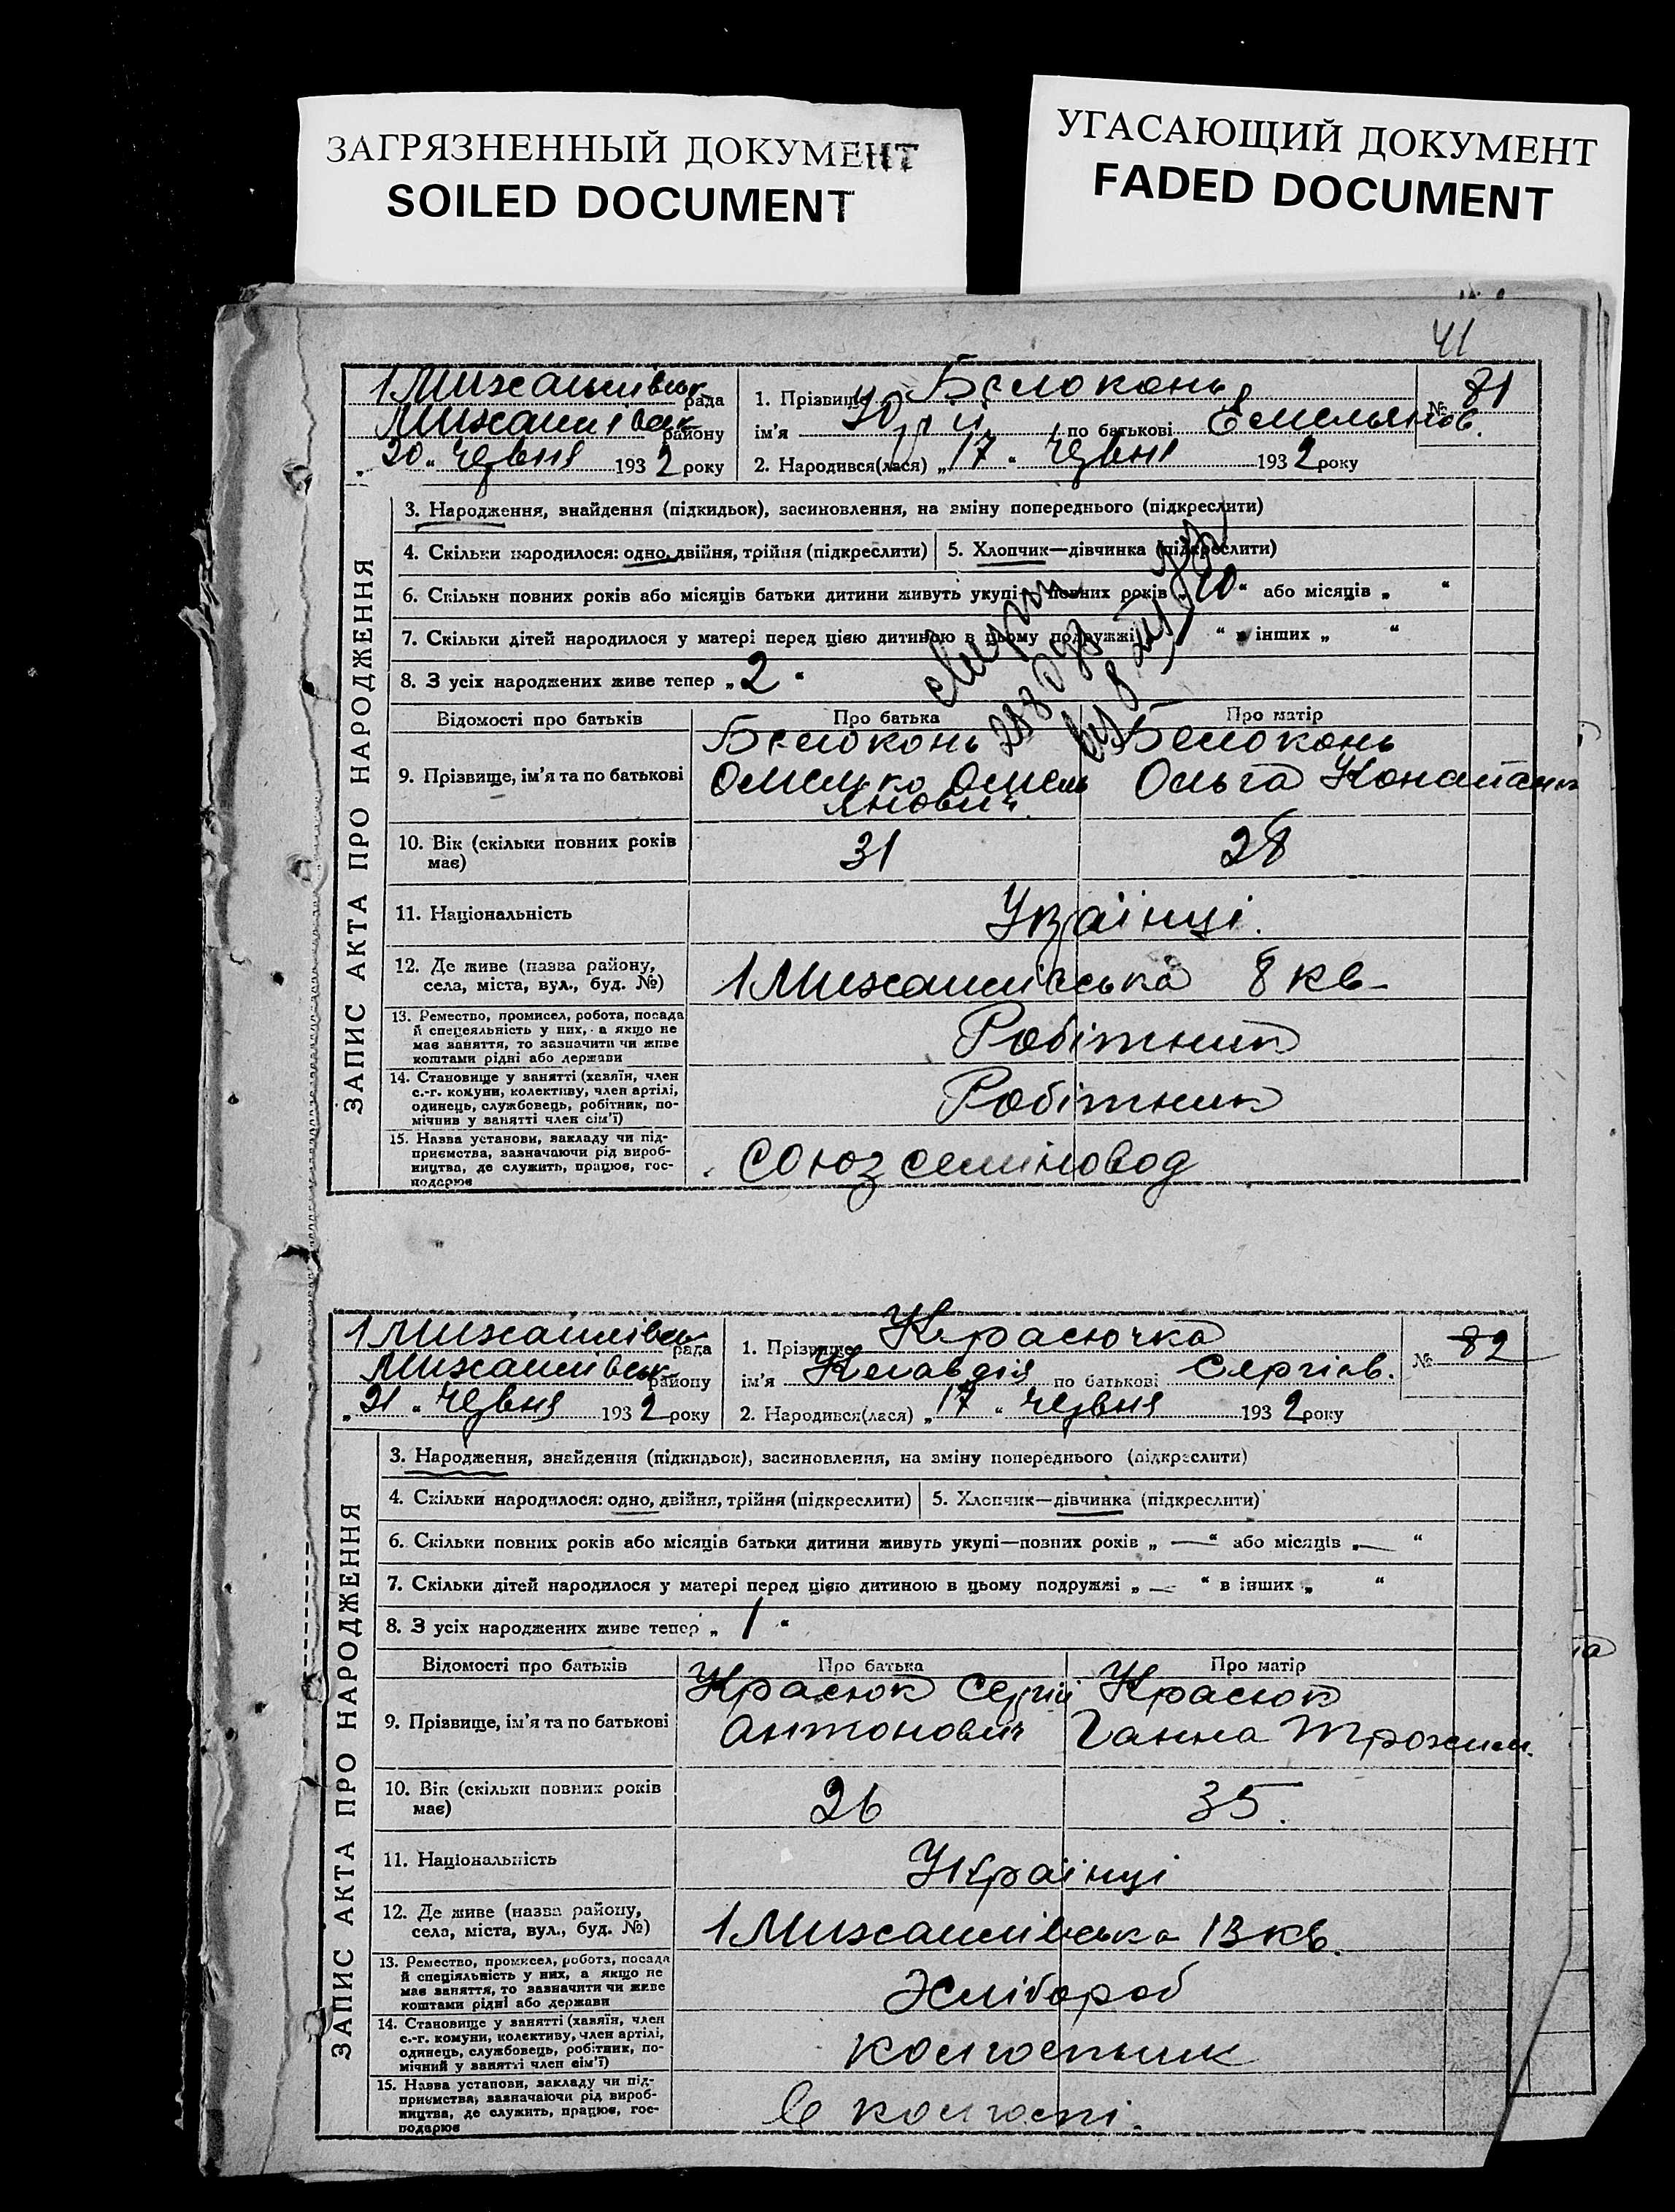 ЗАГРЯЗНЕННЫЙ ДОКУМЕНТ
SOILED DOCUMENT
УГАСАЮЩИЙ ДОКУМЕНТ
FADED DOCUMENT
41
ЗАПИС АКТА ПРО НАРОДЖЕННЯ
1 Михайлівськ рада
Михайлівськ району
„20“ червня 1932 року
1. Прізвище Белоконь
ім'я Юрій по батькові Емельянов.
2. Народився(лася) „17“ червня 1932 року
№ 81
3. Народження, знайдення (підкидьок), засиновлення, на зміну попереднього (підкреслити)
4. Скільки народилося: одно, двійня, трійня (підкреслити)
5. Хлопчик—дівчинка (підкреслити)
6. Скільки повних років або місяців батьки дитини живуть укупі—повних років „10“ або місяців „ “
7. Скільки дітей народилося у матері перед цією дитиною в цьому подружжі “ в інших „ “
8. З усіх народжених живе тепер „2“
Відомості про батьків
Про батька
Про матір
9. Прізвище, ім'я та по батькові
Белоконь
Омелько Омель
янович
Белоконь
Ольга
10. Вік (скільки повних років
має)
31
28
11. Національність
Українці.
12. Де живе (назва району,
села, міста, вул., буд. №)
1 Михайлівська 8 кв-
13. Ремество, промисел, робота, посада
й спецеяльність у них, а якщо не
має заняття, то зазначити чи живе
коштами рідні або держави
Робітник
14. Становище у занятті (хазяїн, член
с.-г. комуни, колективу, член артілі,
одинець, службовець, робітник, по-
мічник у занятті член сім'ї)
Робітник
15. Назва установи, закладу чи під-
приємства, зазначаючи рід вироб-
ництва, де служить, працює, гос-
подарює
Союз семіновод
ЗАПИС АКТА ПРО НАРОДЖЕННЯ
1 Михайлівськ рада
Михайлівськ району
„21“ червня 1932 року
1. Прізвище Красючка
ім'я Клавдія по батькові Сергіїв.
2. Народився(лася) „17“ червня 1932 року
№ 82
3. Народження, знайдення (підкидьок), засиновлення, на зміну попереднього (підкреслити)
4. Скільки народилося: одно, двійня, трійня (підкреслити)
5. Хлопчик—дівчинка (підкреслити)
6. Скільки повних років або місяців батьки дитини живуть укупі—повних років „—“ або місяців „— “
7. Скільки дітей народилося у матері перед цією дитиною в цьому подружжі „— “ в інших „ “
8. З усіх народжених живе тепер „1“
Відомості про батьків
Про батька
Про матір
9. Прізвище, ім'я та по батькові
Красюк Сергій
Антонович
Красюк
Ганна Трохим.
10. Вік (скільки повних років
має)
26
35.
11. Національність
Українці
12. Де живе (назва району,
села, міста, вул., буд. №)
1 Михайлівська 13 кв.
13. Ремество, промисел, робота, посада
й спеціяльність у них, а якщо не
має заняття, то зазначити чи живе
коштами рідні або держави
Хлібороб
14. Становище у занятті (хазяїн, член
с.-г. комуни, колективу, член артілі,
одинець, службовець, робітник, по-
мічний у занятті член сім'ї)
колгоспник
15. Назва установи, закладу чи під-
приємства, зазначаючи рід вироб-
ництва, де служить, працює, гос-
подарює
в колгоспі.